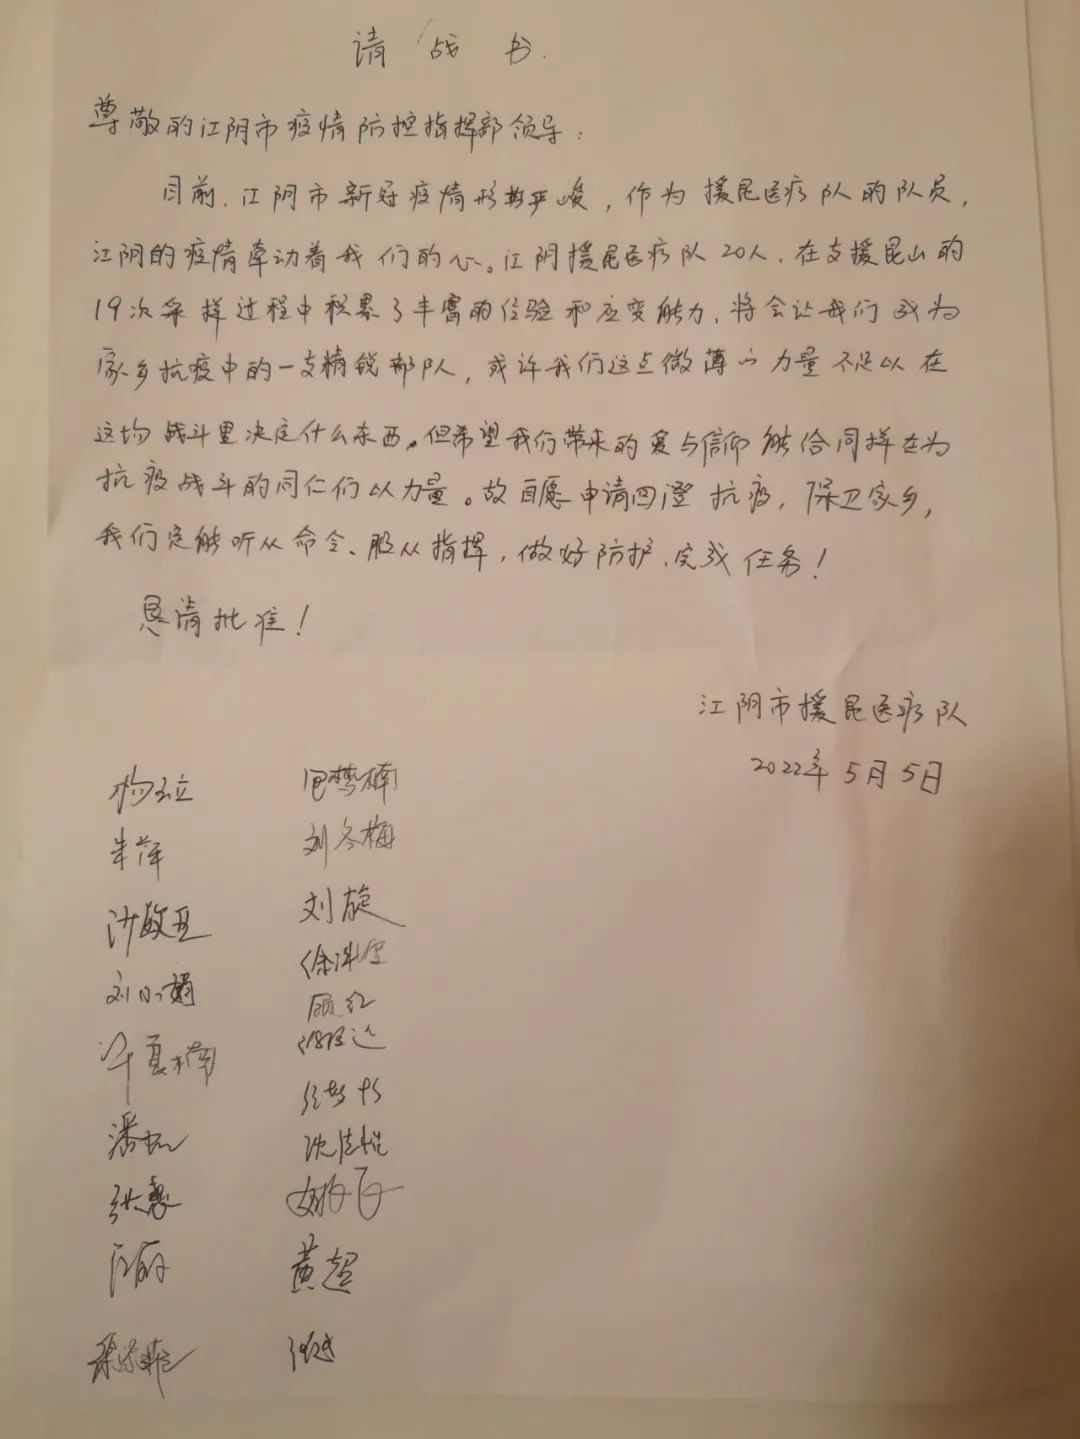 请战书
尊敬的江阴市疫情防控指挥部领导：
目前，江阴市新冠疫情形势严峻，作为援昆医疗队的队员，
江阴的疫情牵动着我们的心。江阴援昆医疗队20人，在支援昆山的
19次采样过程中积累了丰富的经验和应变能力，将会让我们成为
家乡抗疫中的一支精锐部队，或许我们这点微薄的力量不足以在
这场战斗里决定什么东西，但希望我们带来的爱与信仰能给同样在为
抗疫战斗的同仁们以力量。故自愿申请回澄抗疫，保卫家乡，
我们定能听从命令、服从指挥，做好防护、完成任务！
恳请批准！
江阴市援昆医疗队
2022年5月5日
朱萍
刘冬梅
刘旋
顾红
张慧
黄超